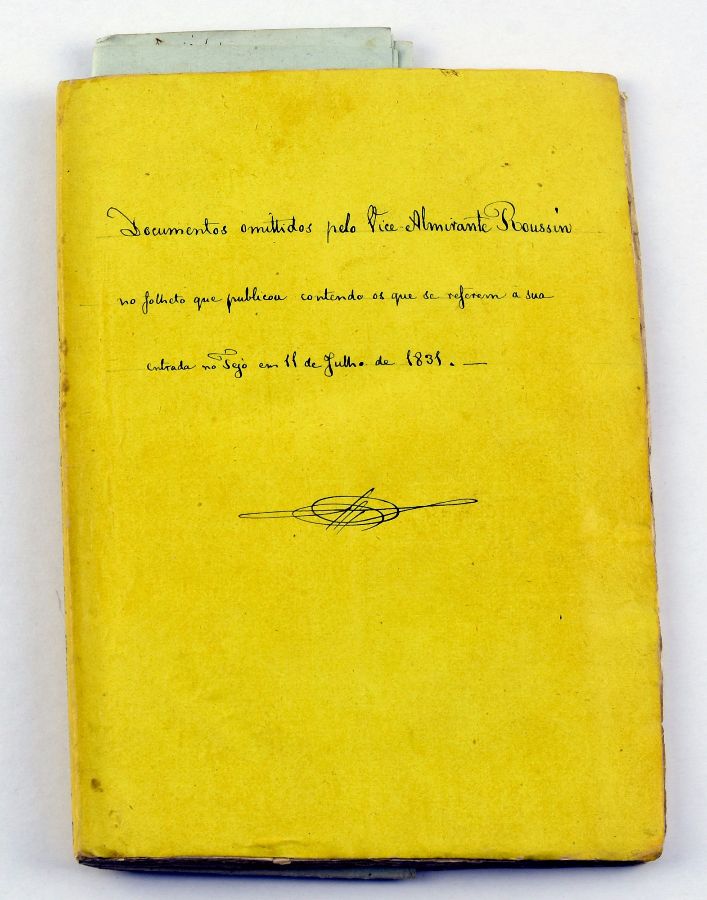 Documentos omittidos pelo Vice-Almirante Roussin
no folheto que publicou contendo os que se referem á sua
entrada no Tejo em 11 de Julho de 1831. —